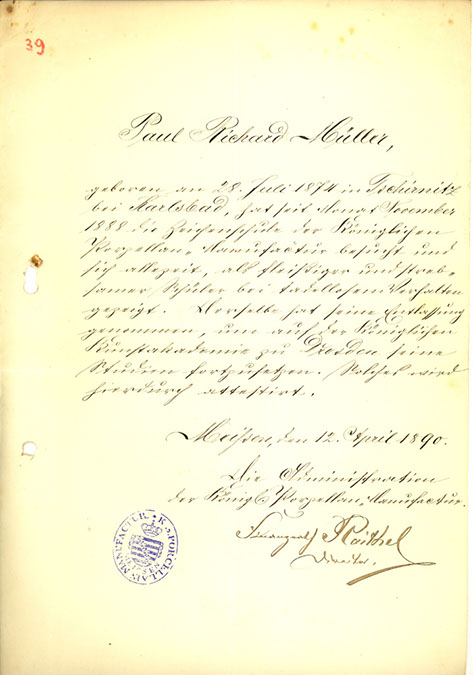 39
Paul Richard Müller,
geboren am 28. Juli 1874 in Tschirnitz
bei Karlsbad, hat seit Monat November
1888 die Zeichenschule der Königlichen
Porzellan-Manufactur besucht und
sich allezeit, als fleißiger und streb-
samer Schüler bei tadellosem Verhalten
gezeigt. Derselbe hat seine Entlassung
genommen, um auf der Königlichen
Kunstakademie zu Dresden seine
Studien fortzusetzen. Solches wird
hierdurch attestirt.
Meißen, den 12. April 1890.
Die Administration
der Königl. Porzellan-Manufactur.
Raithel
Director.
K. S. PORCELLAIN MANUFACTUR
MEISSEN